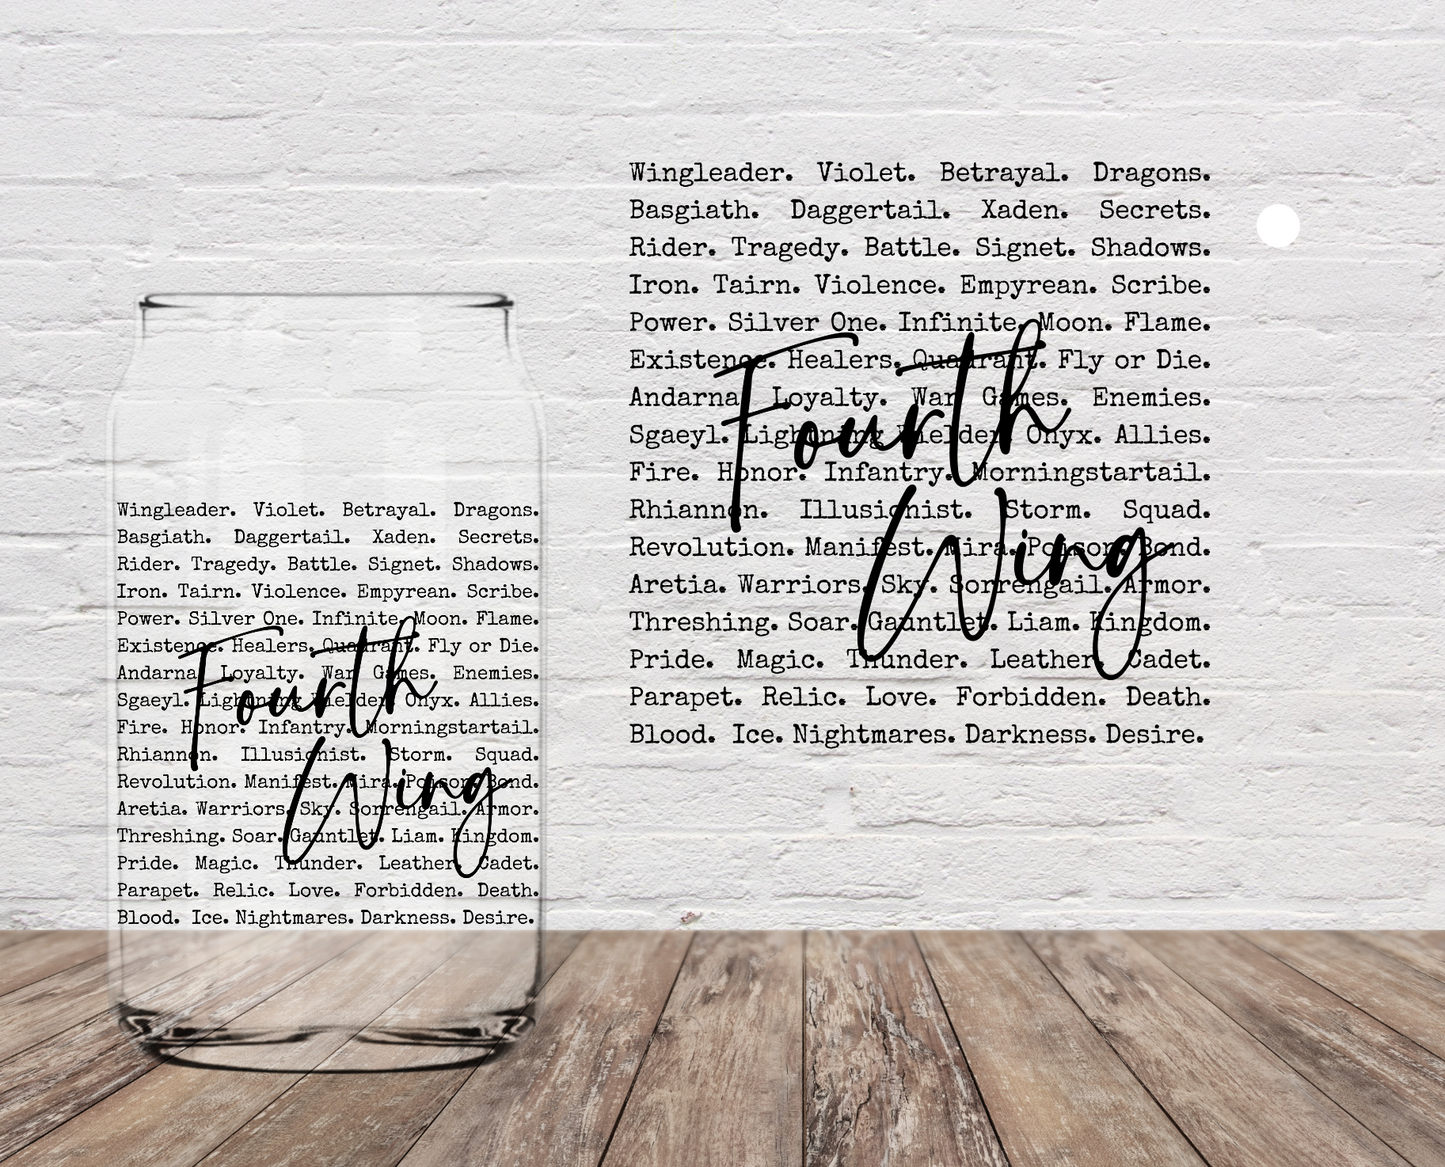 Wingleader. Violet. Betrayal. Dragons.
Basgiath. Daggertail. Xaden. Secrets.
Rider. Tragedy. Battle. Signet. Shadows.
Iron. Tairn. Violence. Empyrean. Scribe.
Power. Silver One. Infinite. Moon. Flame.
Existence. Healers. Quadrant. Fly or Die.
Andarna. Loyalty. War Games. Enemies.
Sgaeyl. Lightning Wielder. Onyx. Allies.
Fire. Honor. Infantry. Morningstartail.
Rhiannon. Illusionist. Storm. Squad.
Revolution. Manifest. Mira. Poison. Bond.
Aretia. Warriors. Sky. Sorrengail. Armor.
Threshing. Soar. Gauntlet. Liam. Kingdom.
Pride. Magic. Thunder. Leather. Cadet.
Parapet. Relic. Love. Forbidden. Death.
Blood. Ice. Nightmares. Darkness. Desire.
Fourth
Wing
Wingleader. Violet. Betrayal. Dragons.
Basgiath. Daggertail. Xaden. Secrets.
Rider. Tragedy. Battle. Signet. Shadows.
Iron. Tairn. Violence. Empyrean. Scribe.
Power. Silver One. Infinite. Moon. Flame.
Existence. Healers. Quadrant. Fly or Die.
Andarna. Loyalty. War Games. Enemies.
Sgaeyl. Lightning Wielder. Onyx. Allies.
Fire. Honor. Infantry. Morningstartail.
Rhiannon. Illusionist. Storm. Squad.
Revolution. Manifest. Mira. Poison. Bond.
Aretia. Warriors. Sky. Sorrengail. Armor.
Threshing. Soar. Gauntlet. Liam. Kingdom.
Pride. Magic. Thunder. Leather. Cadet.
Parapet. Relic. Love. Forbidden. Death.
Blood. Ice. Nightmares. Darkness. Desire.
Fourth
Wing